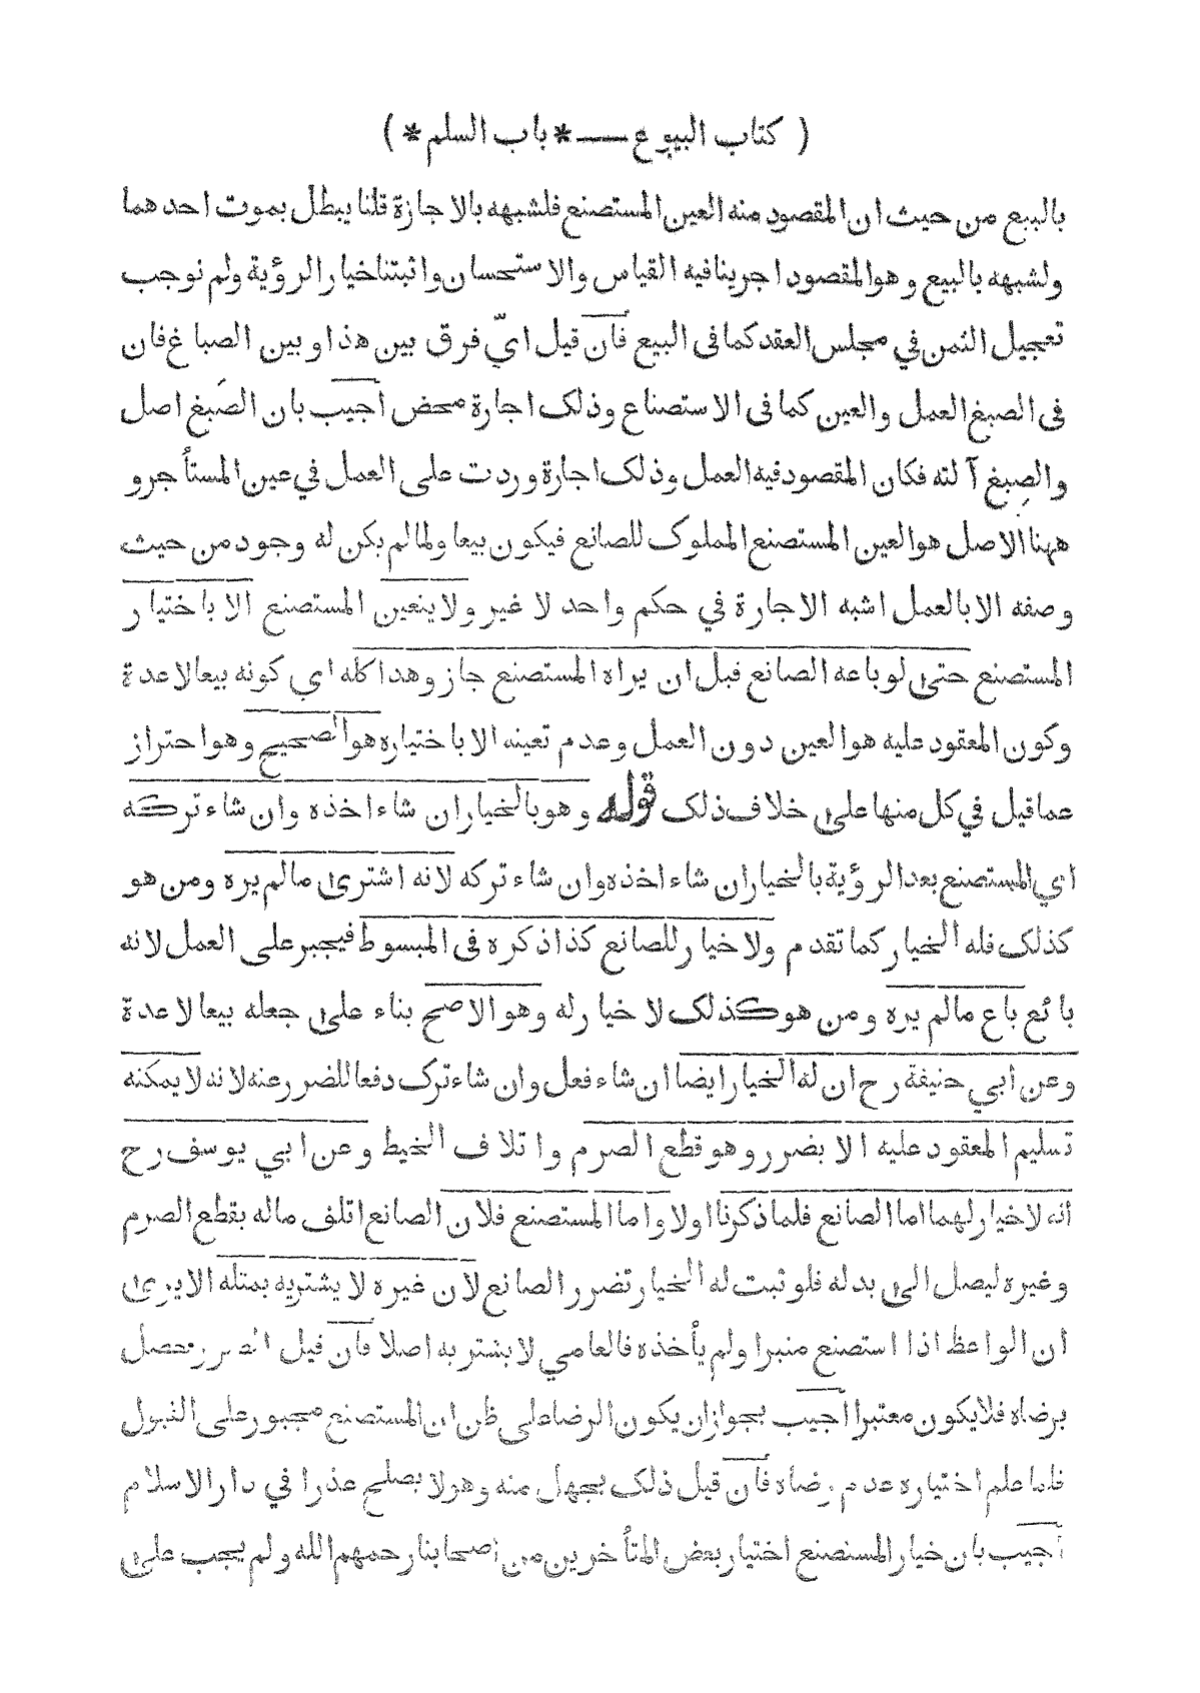 ( كتاب البيوع — * باب السلم * )
بالبيع من حيث ان المقصود منه العين المستصنع فلشبهه بالاجازة قلنا يبطل بموت احدهما
ولشبهه بالبيع وهو المقصود اجرينا فيه القياس والاستحسان واثبتنا خيار الرؤية ولم نوجب
تعجيل الثمن في مجلس العقد كما فى البيع فان قيل ايّ فرق بين هذا وبين الصباغ فان
فى الصبغ العمل والعين كما فى الاستصناع وذلك اجارة محض اجيب بان الصَبغ اصل
والصِبغ آلته فكان المقصود فيه العمل وذلك اجارة وردت على العمل في عين المستأجر و
ههنا الاصل هو العين المستصنع المملوك للصانع فيكون بيعا ولما لم يكن له وجود من حيث
وصفه الا بالعمل اشبه الاجارة في حكم واحد لا غير ولا يتعين المستصنع الا باختيار
المستصنع حتى لو باعه الصانع قبل ان يراه المستصنع جاز وهذا كله اي كونه بيعا لا عدة
وكون المعقود عليه هو العين دون العمل وعدم تعينه الا باختياره هو الصحيح وهو احتراز
عما قيل في كل منها على خلاف ذلك قوله وهو بالخيار ان شاء اخذه وان شاء تركه
اي المستصنع بعد الرؤية بالخيار ان شاء اخذه وان شاء تركه لانه اشترى ما لم يره ومن هو
كذلك فله الخيار كما تقدم ولا خيار للصانع كذا ذكره فى المبسوط فيجبر على العمل لانه
بائع باع ما لم يره ومن هو كذلك لا خيار له وهو الاصح بناء على جعله بيعا لا عدة
وعن ابي حنيفة رح ان له الخيار ايضا ان شاء فعل وان شاء ترك دفعا للضرر عنه لانه لا يمكنه
تسليم المعقود عليه الا بضرر وهو قطع الصرم واتلاف الخيط وعن ابي يوسف رح
انه لا خيار لهما اما الصانع فلما ذكرنا اولا واما المستصنع فلان الصانع اتلف ماله بقطع الصرم
وغيره ليصل الى بدله فلو ثبت له الخيار تضرر الصانع لان غيره لا يشتريه بمثله الا يرى
ان الواعظ اذا استصنع منبرا ولم يأخذه فالعامي لا يشتريه اصلا فان قيل حصل
برضاه فلا يكون معتبرا اجيب بجواز ان يكون الرضا على ظن ان المستصنع مجبور على القبول
فلما علم اختياره عدم رضاه فان قيل ذلك بجهل منه وهو لا يصلح عذرا في دار الاسلام
اجيب بان خيار المستصنع اختيار بعض المتأخرين من اصحابنا رحمهم الله ولم يجب على